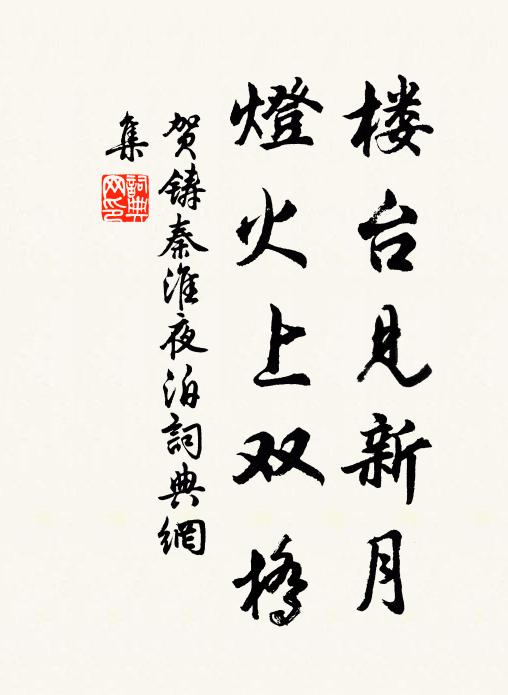 楼台見新月
燈火上双橋
贺鑄秦淮夜泊詞典網
集
詞典
网印